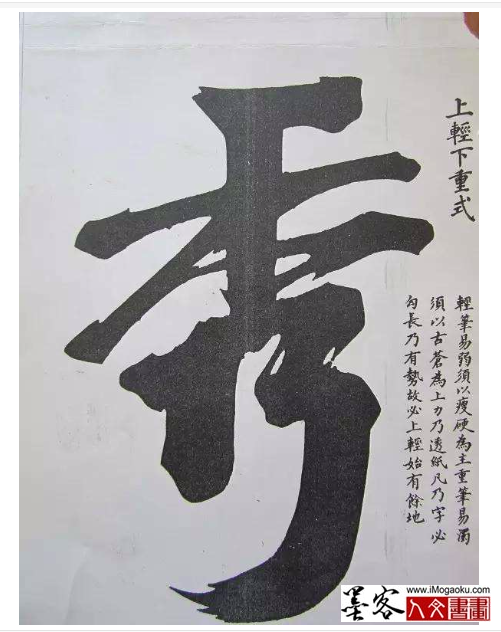 上輕下重式
秀
輕筆易弱須以瘦硬為主重筆易濁
須以古蒼為上力乃透紙凡乃字必
勾長乃有勢故必上輕始有餘地
墨客
www.iMogaoku.com
人文書畫